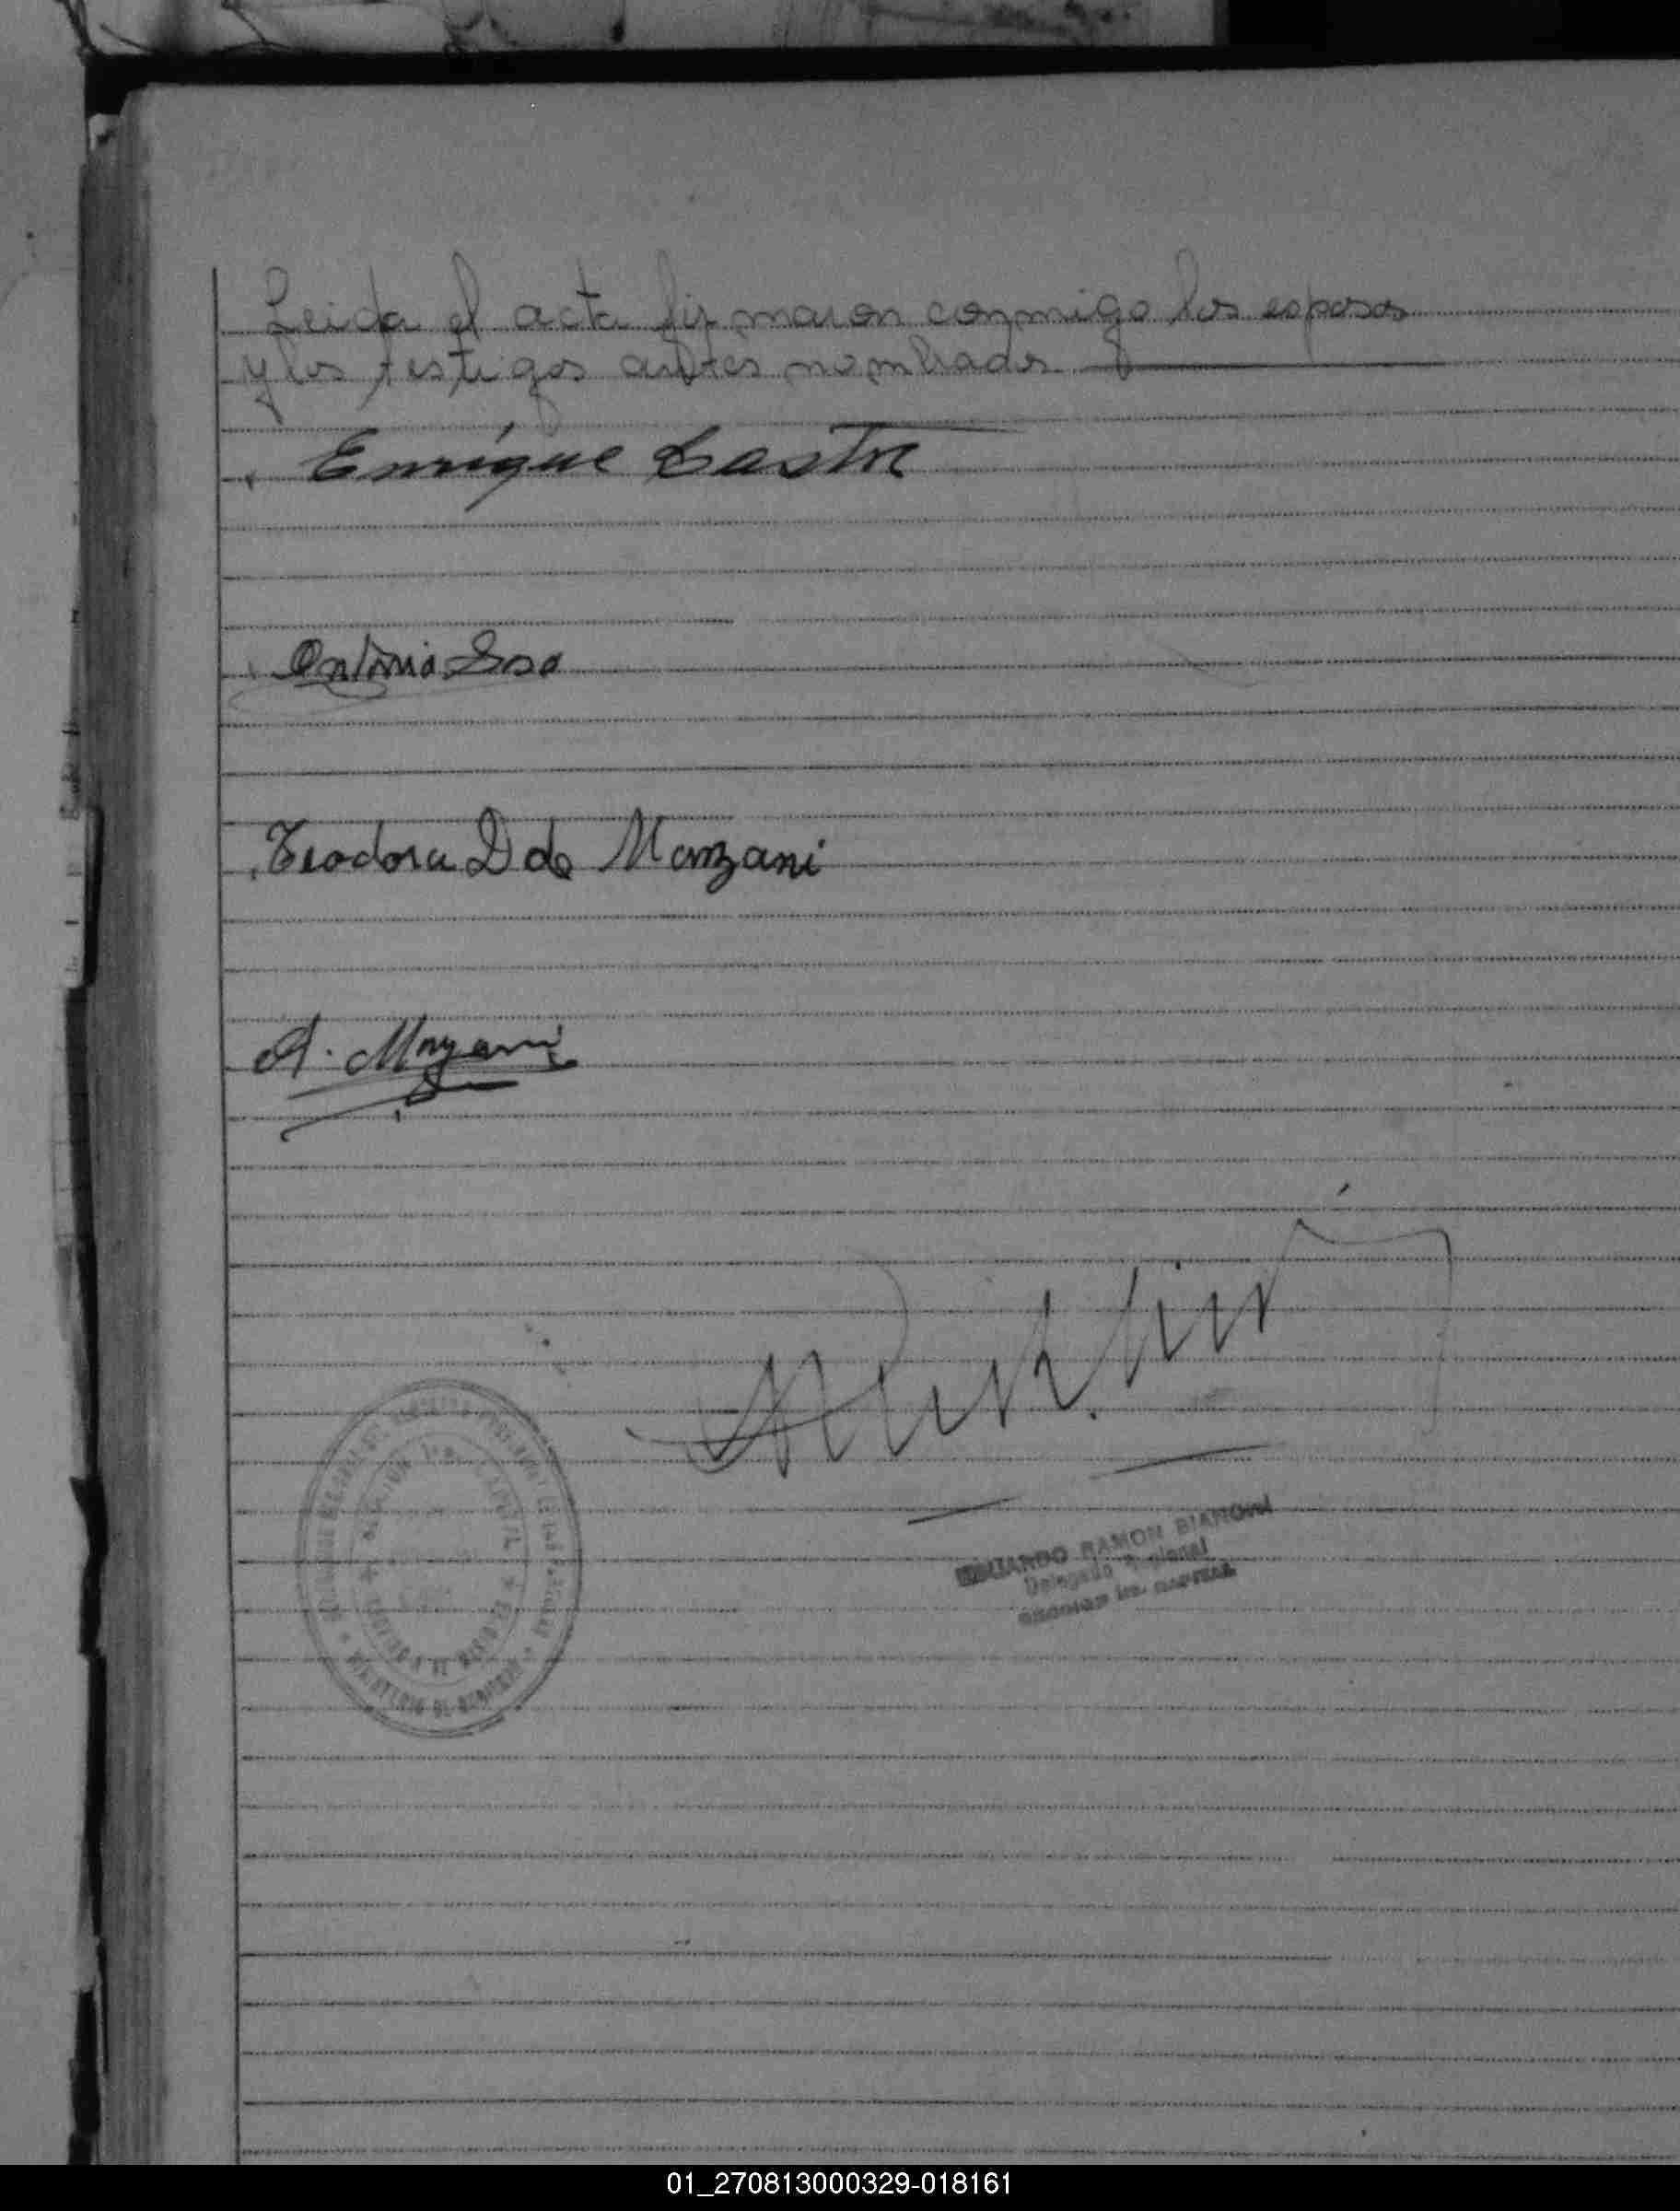 Leida el acta firmaron conmigo los esposos
y los testigos antes nombrados
Enrique Castro
Antonia Sosa
Teodora D de Manzani
A. Manzani
EDUARDO RAMON BIANCHI
Delegado Regional
SECCION 1ra. CAPITAL
SECCION 1ra CAPITAL
MINISTERIO DE GOBIERNO
01_270813000329-018161